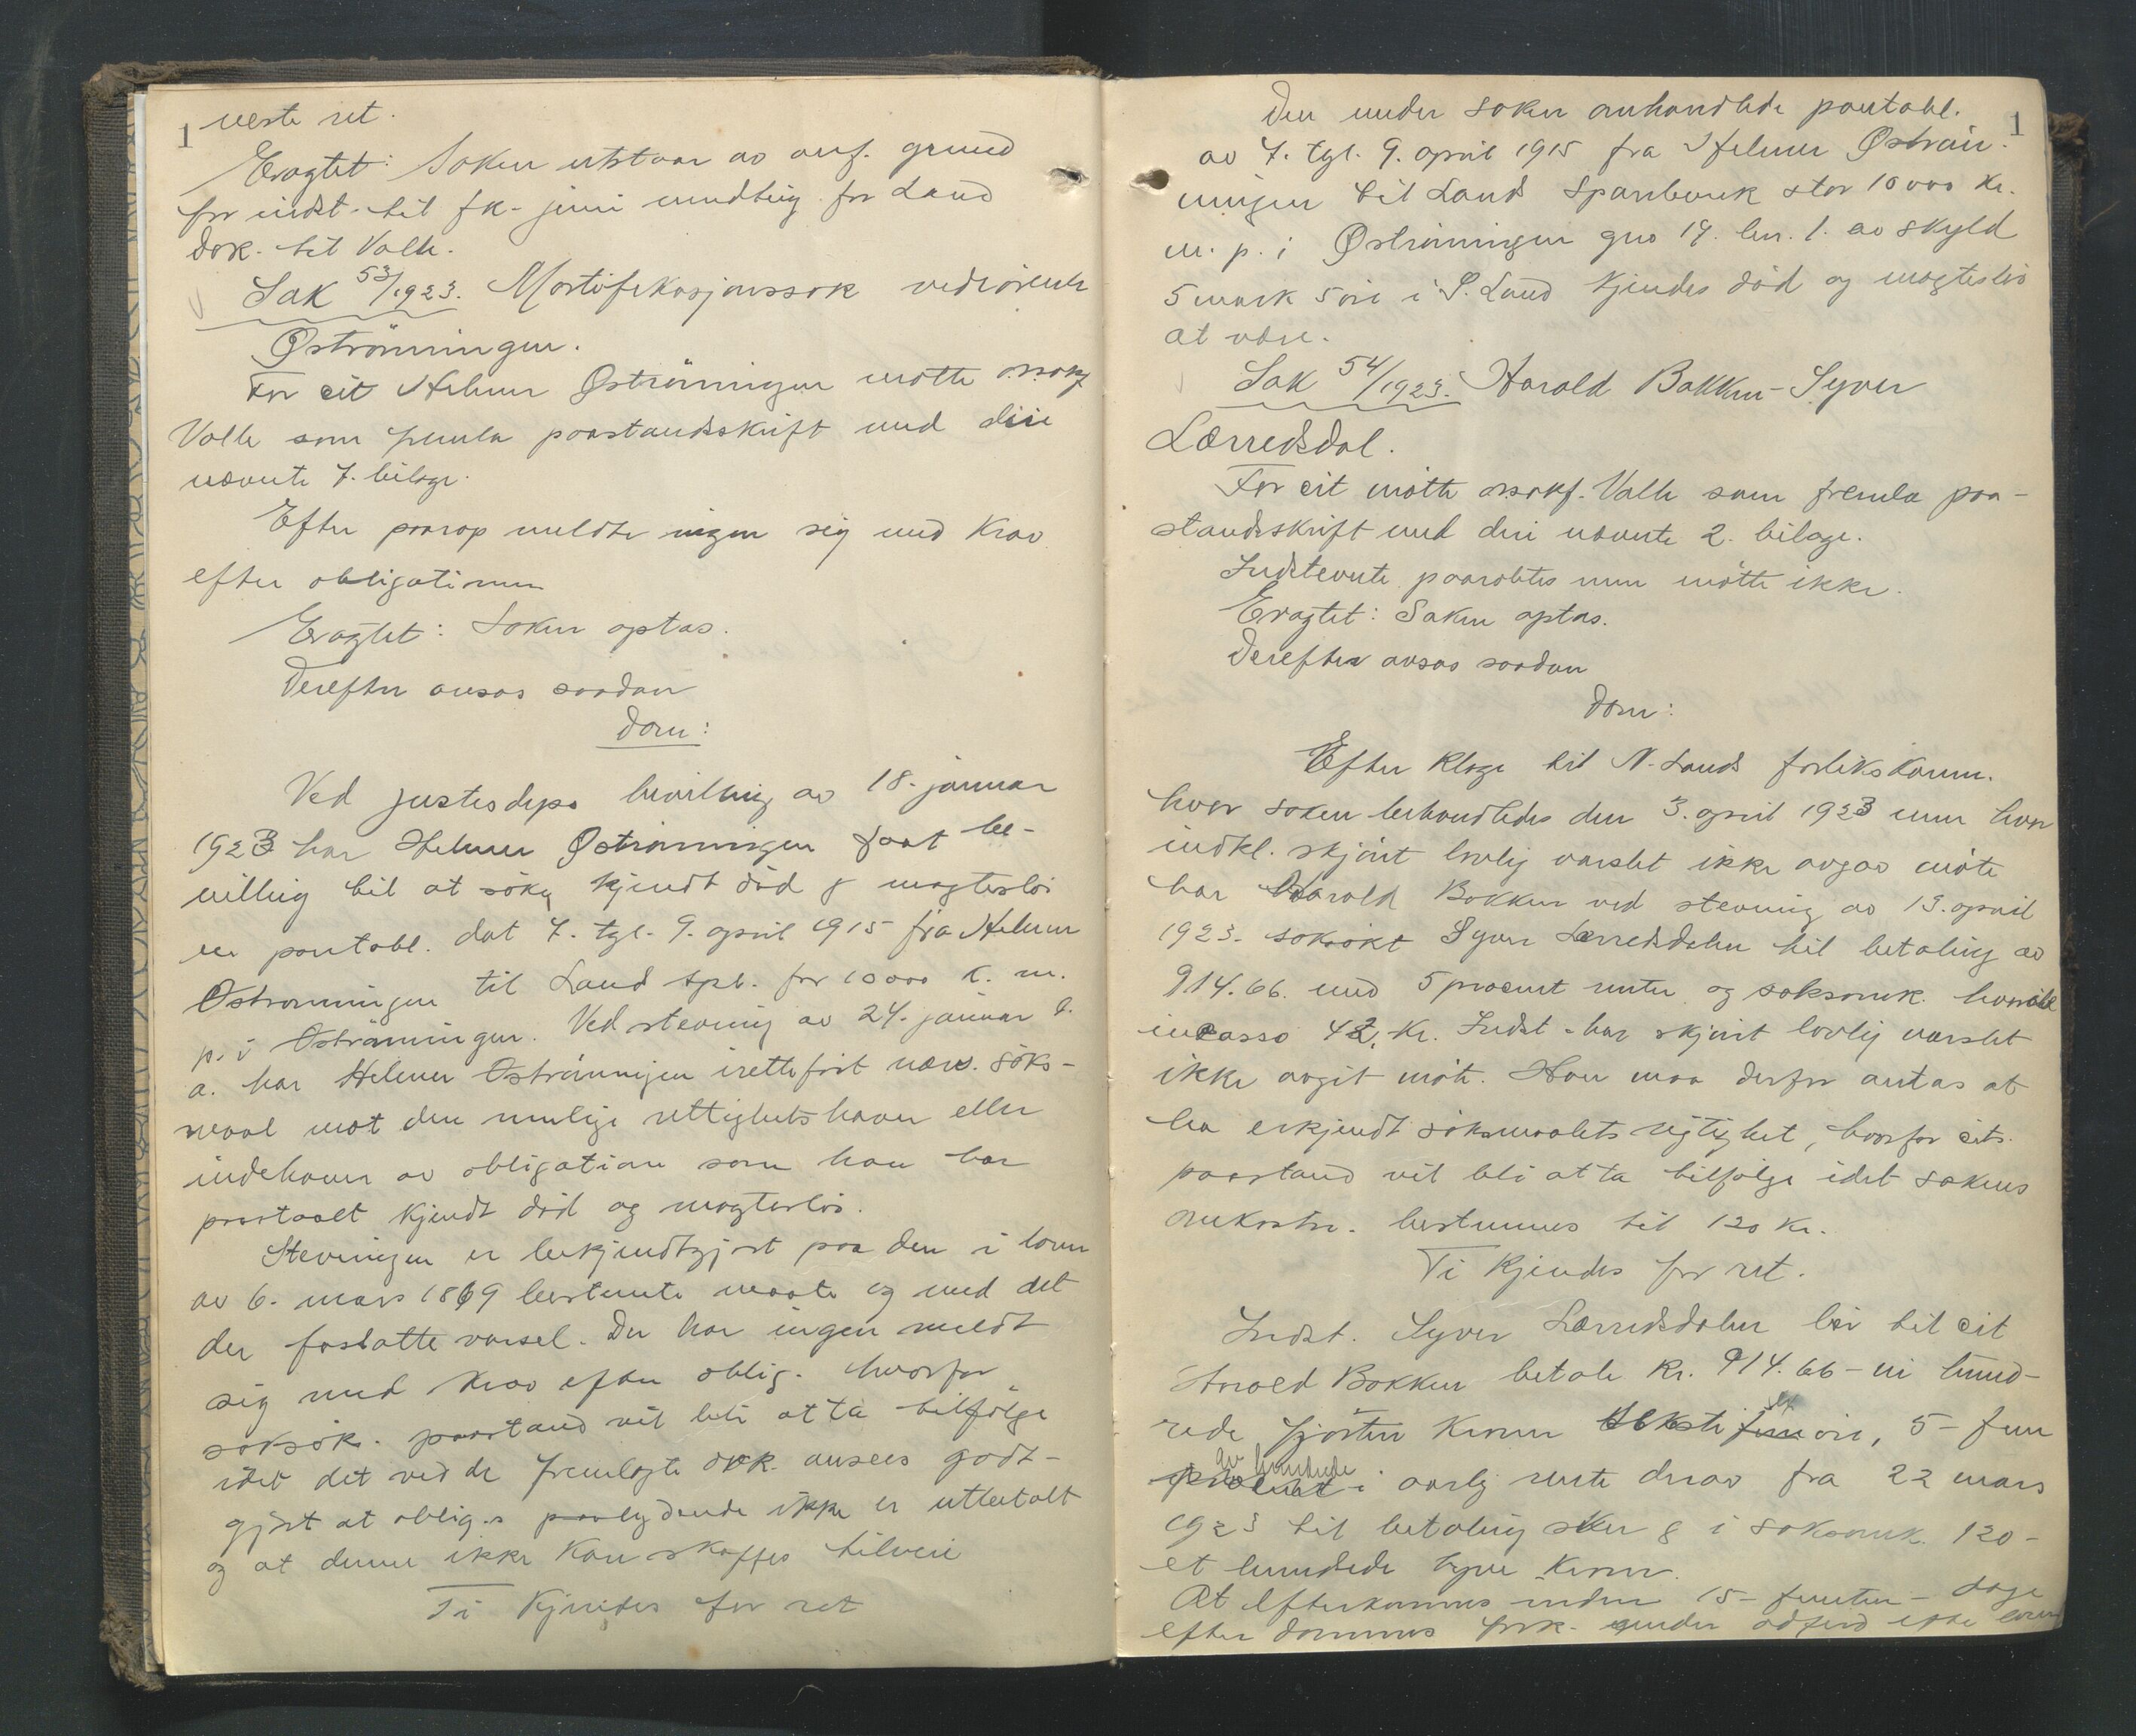 1
neste ret.
Eragtet: Saken utstaar av anf. grund
for indst. til fk. juni mundtlig for Land
dok. til Valle.
Sak 53/1923. Mortifikasjonssak vedrörende
Øströnningen.
For cit Helmer Øströnningen mötte o.r.sakf
Valle som fremla paastandsskrift med deri
nævnte 7. bilage.
Efter paarop meldte ingen sig med krav
efter obligationen
Eragtet: Saken optas.
Derefter avsas saadan
Dom:
Ved justisdeps bevilling av 18. januar
1923 har Helmer Øströnningen faat be-
villing til at söke kjendt död & magteslös
en pantobl. dat 7. tgl. 9. april 1915 fra Helmer
Østrønningen til Land spb. for 10000 k. m.
p. i Øströnningen. Ved stevning av 24. januar d.
a. har Helmer Øströnningen irettefört nærv. söks-
maal mot den mulige rettighetshaver eller
indehaver av obligationen som han har
paastaaet kjendt död og magteslös.
Stevningen er bekjendtgjort paa den i loven
av 6. mars 1869 bestemte maate og med det
der fastsatte varsel. Der har ingen meldt
sig med krav efter oblig. hvorfor
saksök. paastand vil bli at ta tilfölge
idet det ved de fremlagte dok. ansees godt-
gjort at oblig.s paalydende ikke er utbetalt
og at denne ikke kan skaffes tilveie
Ti kjendes for ret
1
Den under saken omhandlede pantobl.
av 7. tgl. 9. april 1915 fra Helmer Øströn-
ningen til Land Sparebank stor 10000 kr.
m. p. i Øströnningen gno 19. bn. 1. av skyld
5 mark 5 öre i S. Land kjendes död og magteslös
at være.
Sak 54/1923. Harald Bakken - Syver
Lærredsdal.
For cit mötte o.r.sakf. Valle som fremla paa-
standsskrift med deri nævnte 2. bilage.
Indstevnte paaroptes men mötte ikke.
Eragtet: Saken optas.
Derefter avsas saadan
Dom:
Efter klage til N. Lands forlikskomm.
hvor saken behandledes den 3. april 1923 men hvor
indkl. skjönt lovlig varslet ikke avgav möte
har Harald Bakken ved stevning av 13. april
1923. saksökt Syver Lærredsdalen til betaling av
914.66. med 5 procent renter og saksomk. hvoriblt
incasso 42, kr. Indst. har skjönt lovlig varslet
ikke avgit möte. Han maa derfor antas at
ha erkjendt söksmaalets rigtighet, hvorfor cits.
paastand vil bli at ta tilfölge idet sakens
omkostn. bestemmes til 120 kr.
Ti kjendes for ret.
Indst. Syver Lærredsdalen bör til cit
Harald Bakken betale kr. 914.66 - ni hund-
rede fjorten kroner seksti seks öre, 5 - fem
av hundrede i aarlig rente derav fra 22 mars
1923 til betaling sker & i saksomk. 120 -
et hundrede tyve kroner.
At efterkommes inden 15 - femten - dage
efter dommens fork. under adfærd efter loven